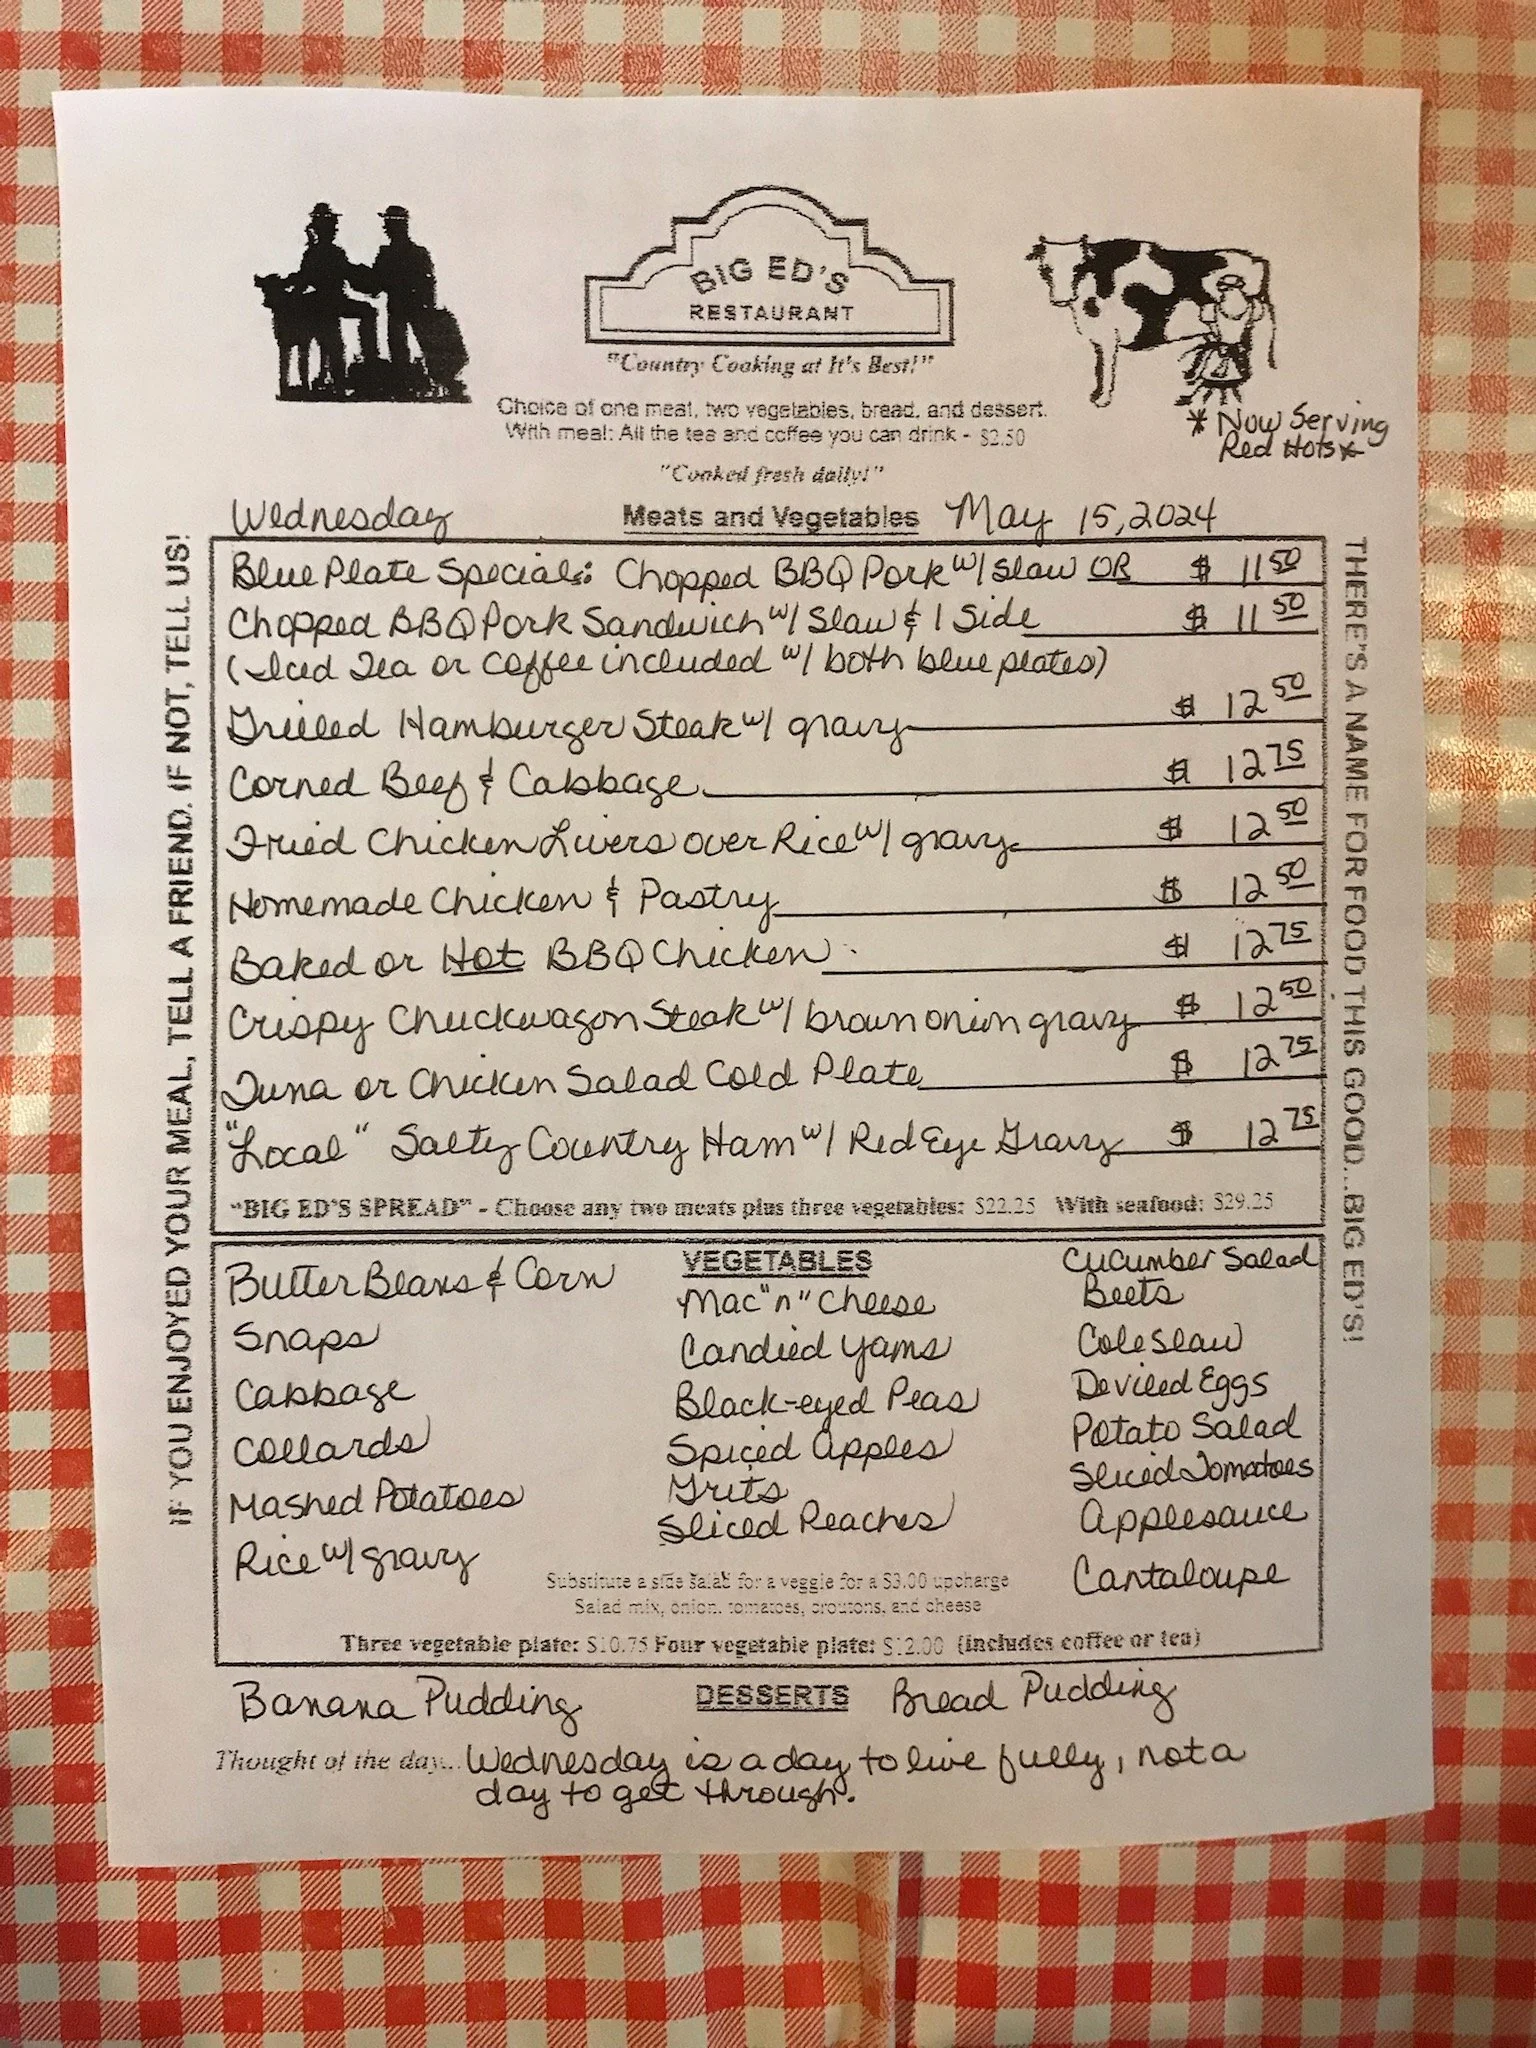 BIG ED'S
RESTAURANT
"Country Cooking at It's Best!"
Choice of one meat, two vegetables, bread, and dessert.
With meal: All the tea and coffee you can drink - $2.50
* Now Serving
Red Hots *
"Cooked fresh daily!"
Wednesday Meats and Vegetables May 15, 2024
IF YOU ENJOYED YOUR MEAL, TELL A FRIEND. IF NOT, TELL US!
Blue Plate Specials: Chopped BBQ Pork w/ Slaw OR $ 11 50
Chopped BBQ Pork Sandwich w/ Slaw & 1 Side $ 11 50
(Iced Tea or Coffee included w/ both blue plates)
Grilled Hamburger Steak w/ gravy $ 12 50
Corned Beef & Cabbage $ 12 75
Fried Chicken Livers over Rice w/ gravy $ 12 50
Homemade Chicken & Pastry $ 12 50
Baked or Hot BBQ Chicken $ 12 75
Crispy Chuckwagon Steak w/ brown onion gravy $ 12 50
Tuna or Chicken Salad Cold Plate $ 12 75
"Local" Salty Country Ham w/ Red Eye Gravy $ 12 75
"BIG ED'S SPREAD" - Choose any two meats plus three vegetables: $22.25 With seafood: $29.25
THERE'S A NAME FOR FOOD THIS GOOD...BIG ED'S!
VEGETABLES
Butter Beans & Corn
Snaps
Cabbage
Collards
Mashed Potatoes
Rice w/ gravy
Mac "n" Cheese
Candied Yams
Black-eyed Peas
Spiced Apples
Grits
Sliced Peaches
Cucumber Salad
Beets
Cole Slaw
Deviled Eggs
Potato Salad
Sliced Tomatoes
Applesauce
Cantaloupe
Substitute a side salad for a veggie for a $3.00 upcharge
Salad mix, onion, tomatoes, croutons, and cheese
Three vegetable plate: $10.75 Four vegetable plate: $12.00 (includes coffee or tea)
Banana Pudding DESSERTS Bread Pudding
Thought of the day... Wednesday is a day to live fully, not a
day to get through.